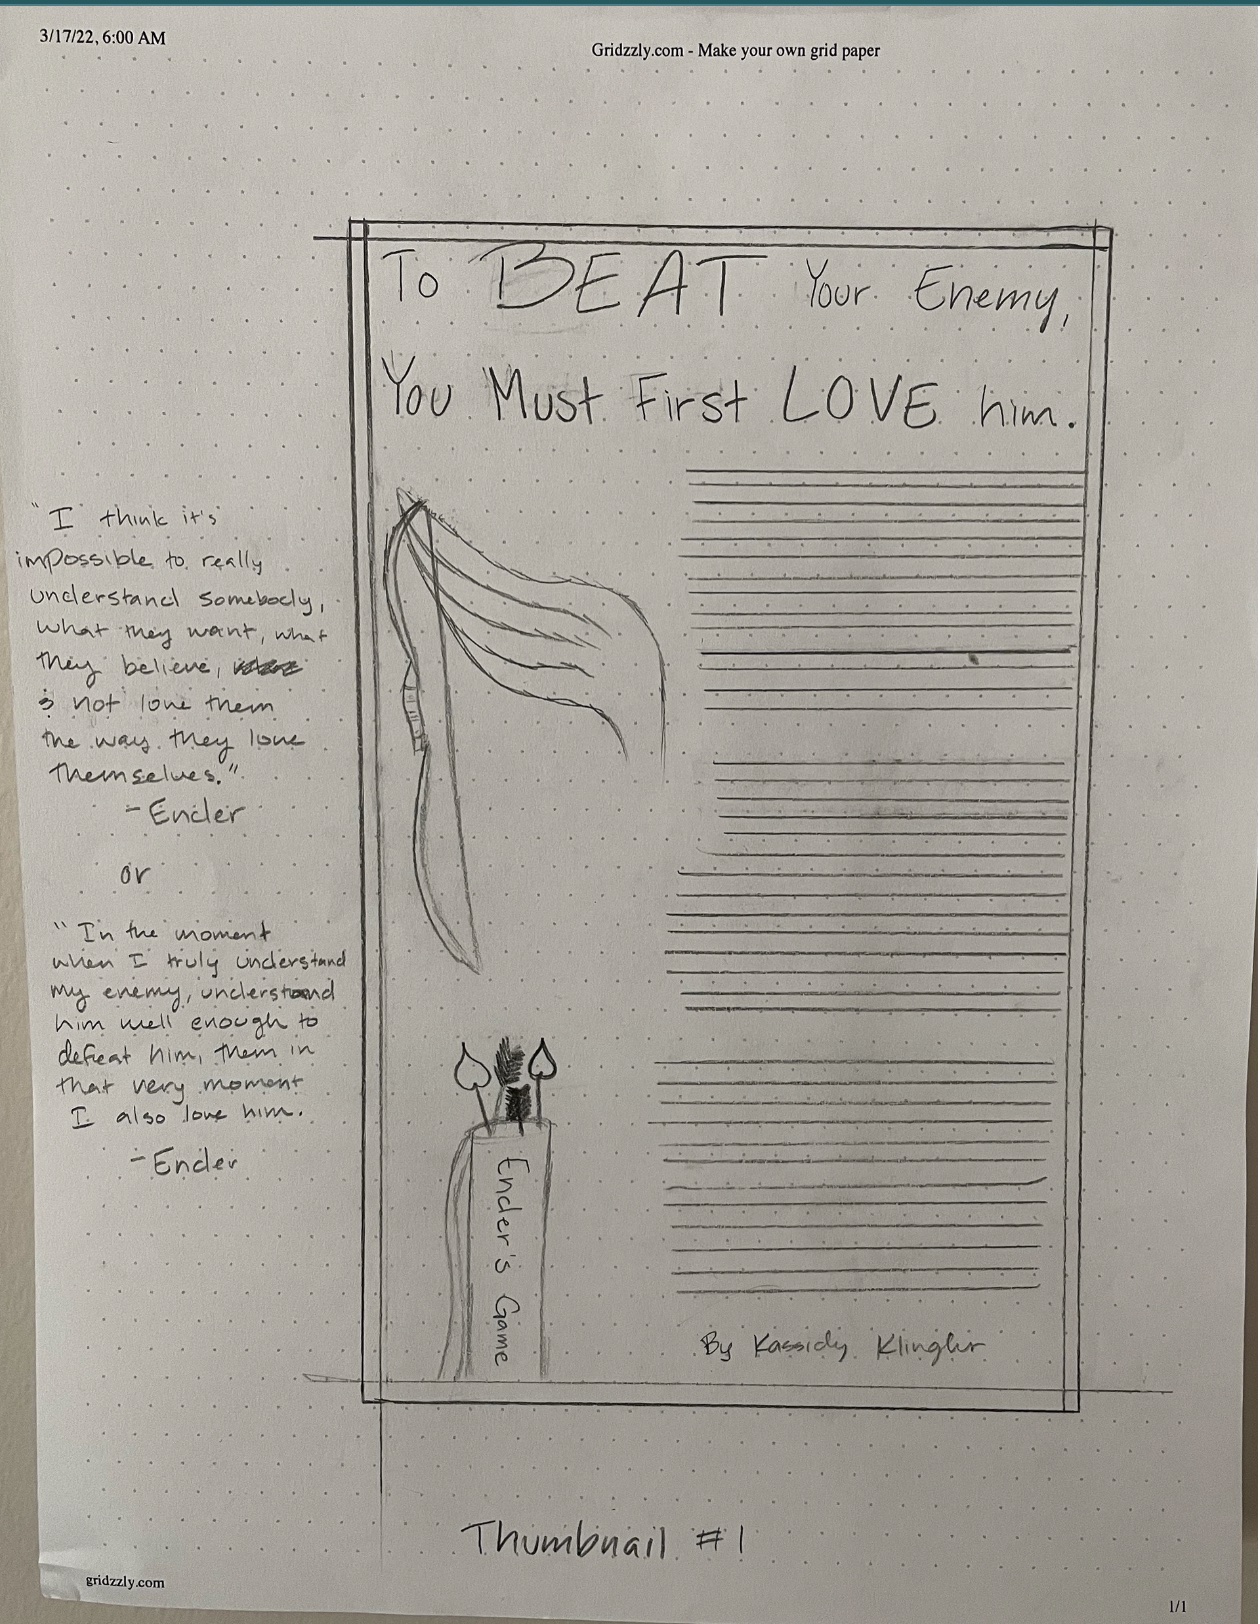 3/17/22, 6:00 AM
Gridzzly.com - Make your own grid paper
To BEAT Your Enemy,
You Must First LOVE him.
"I think it's
impossible to really
understand somebody,
what they want, what
they believe,
& not love them
the way they love
themselves."
- Ender
or
"In the moment
when I truly understand
my enemy, understand
him well enough to
defeat him, them in
that very moment
I also love him.
- Ender
Ender's Game
By Kassidy Klingler
Thumbnail #1
gridzzly.com
1/1